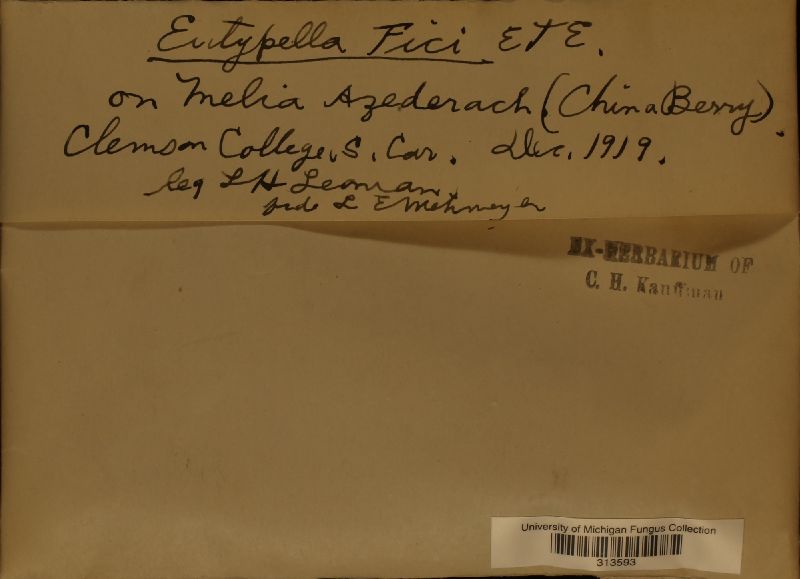 Eutypella Fici E & E.
on Melia Azederach (China Berry).
Clemson College, S. Car. Dec. 1919.
leg L H Leonian.
fide L E Wehmeyer
EX-HERBARIUM OF
C. H. Kauffman
University of Michigan Fungus Collection
313593